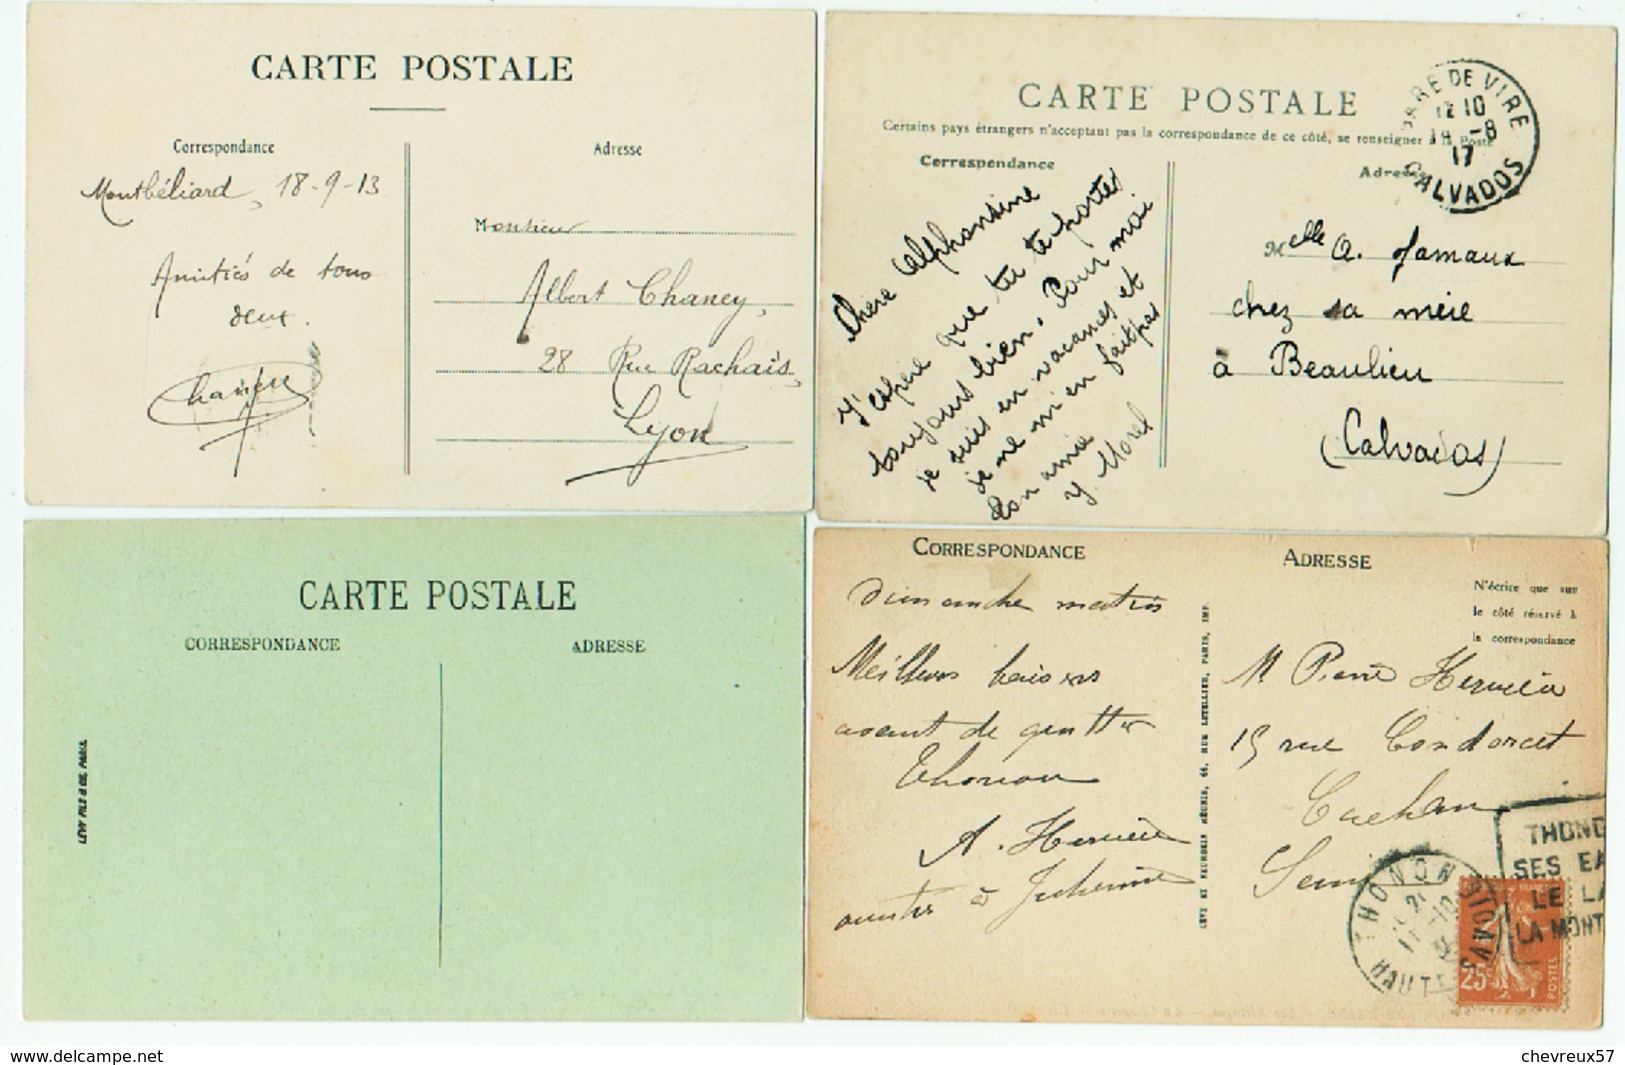 CARTE POSTALE
Correspondance
Adresse
Montbéliard, 18-9-13
Amitiés de tous
deux.
Monsieur
Albert Chaney,
28 Rue Rachais,
Lyon
CARTE POSTALE
Certains pays étrangers n'acceptant pas la correspondance de ce côté, se renseigner à la Poste
Correspondance
Adresse
GARE DE VIRE
CALVADOS
12 10
18 -8
17
Chère Alphonsine
J'espère que tu te portes
toujours bien. Pour moi
je suis en vacances et
je ne m'en fait pas
Ton amie
Y Morel
Melle A. Jamaux
chez sa mère
à Beaulieu
(Calvados)
CARTE POSTALE
CORRESPONDANCE
ADRESSE
LÉVY FILS & CIE, PARIS.
CORRESPONDANCE
ADRESSE
N'écrire que sur
le côté réservé à
la correspondance
Dimanche matin
Meilleurs baisers
avant de quitter
Thonon
A. Hervieu
amitiés à
LÉVY ET NEURDEIN RÉUNIS, 44, RUE LETELLIER, PARIS, IMP.
M Pierre Hervieu
15 rue Condorcet
Cachan
Seine
THONON
HAUTE SAVOIE
THONO
SES EA
LE LA
LA MONT
25c
POSTES
www.delcampe.net
chevreux57